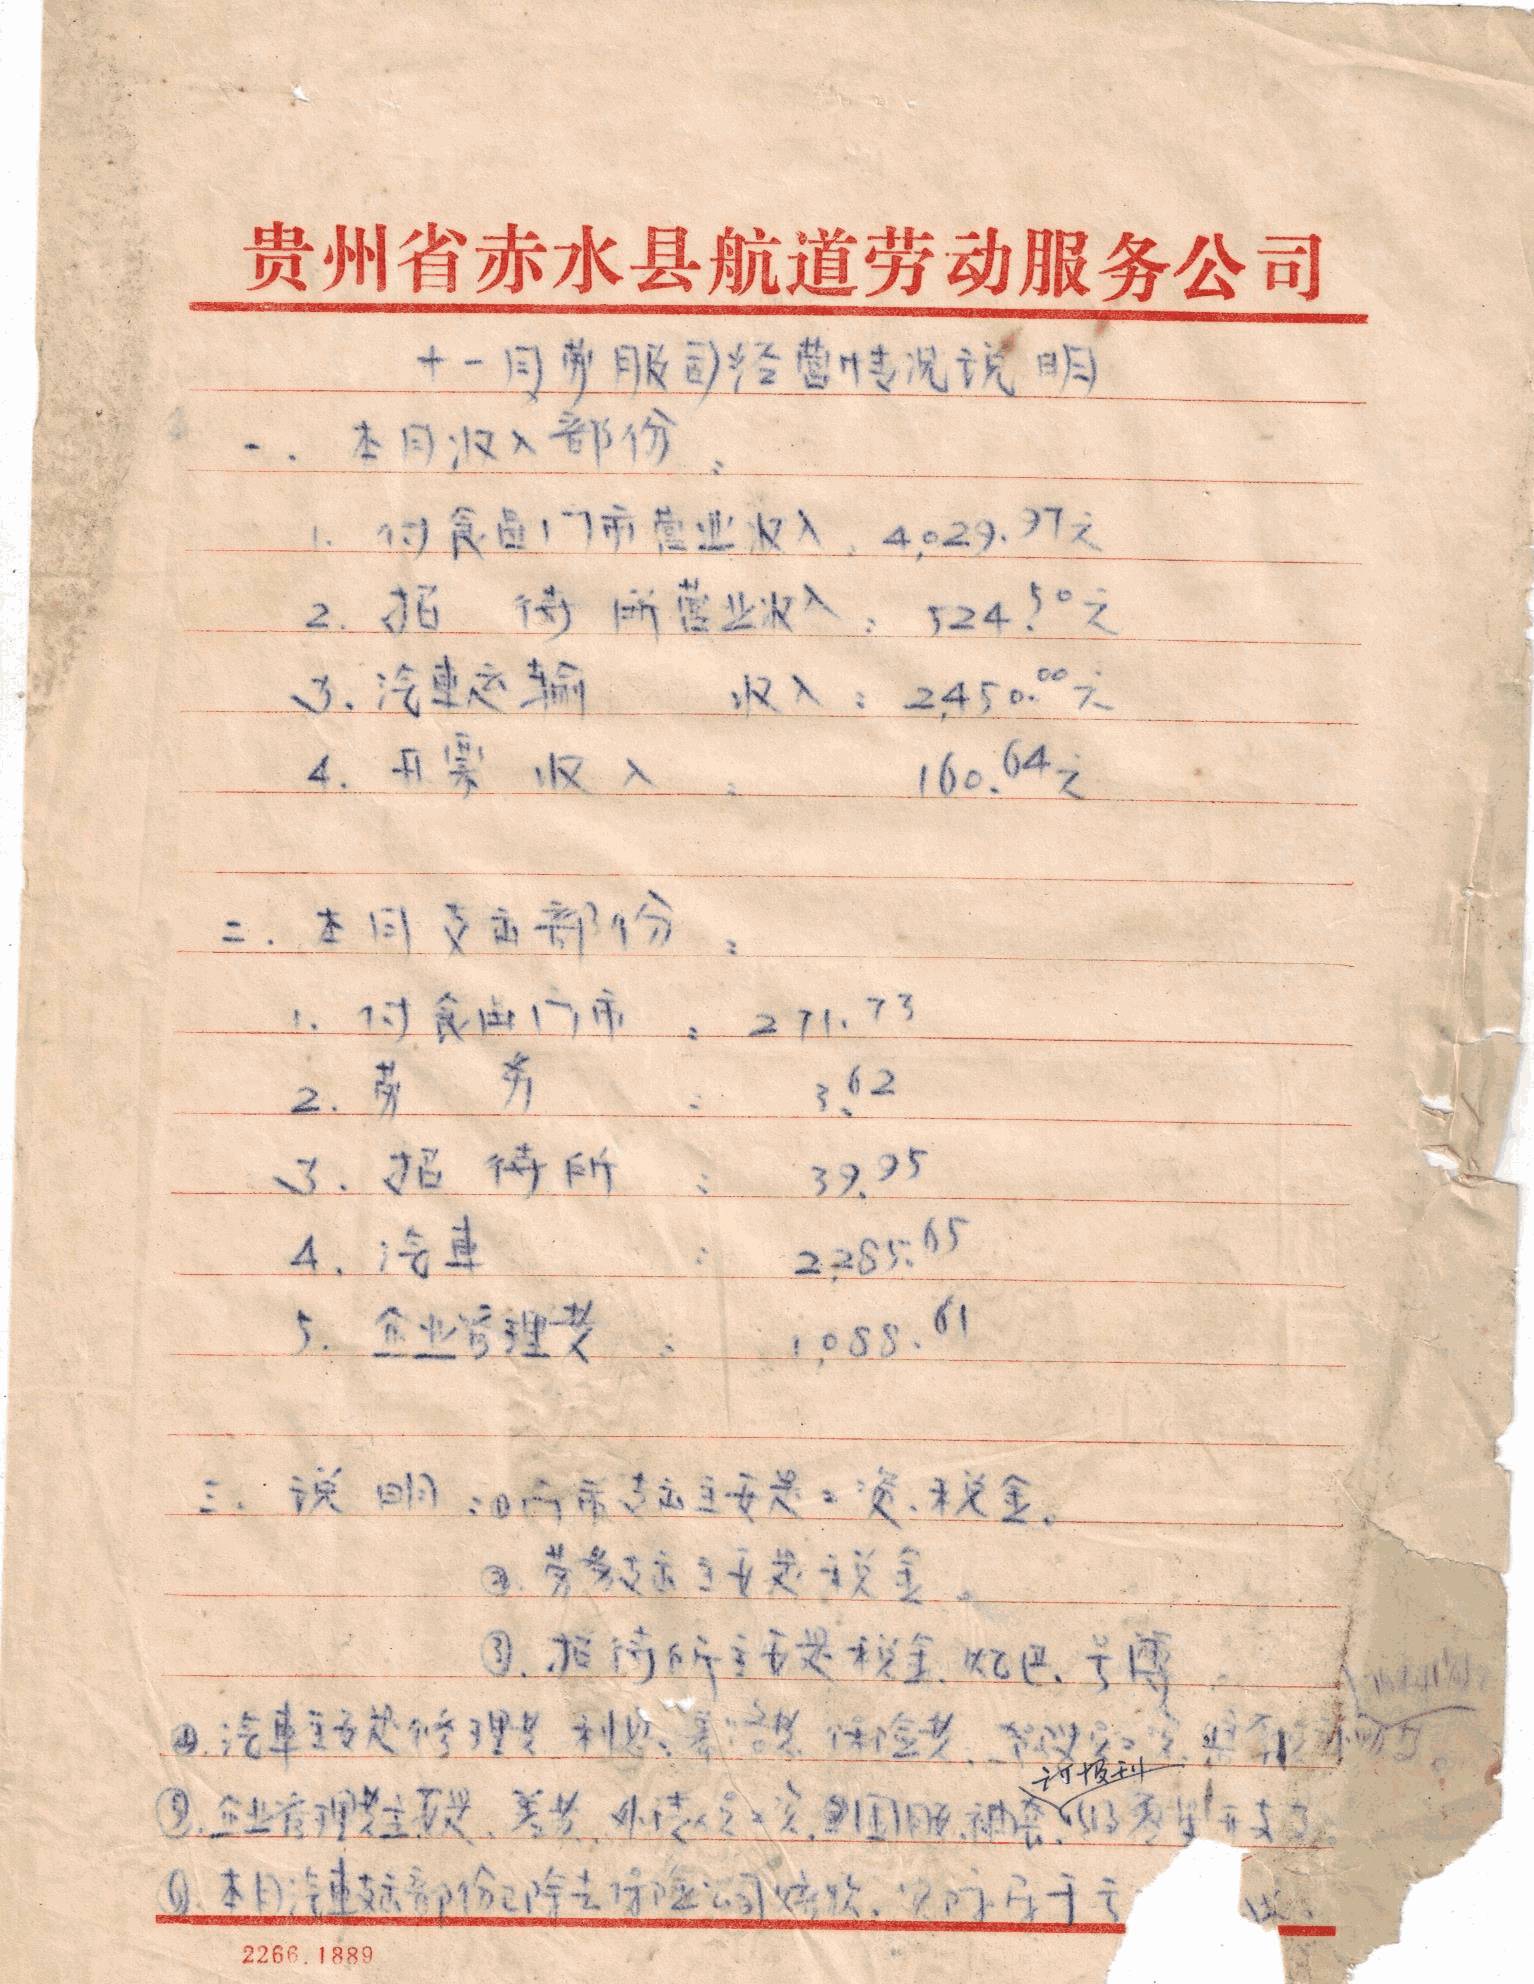 贵州省赤水县航道劳动服务公司
十一月劳服司经营情况说明
一. 本月收入部份:
1. 付食品门市营业收入: 4,029.97元
2. 招待所营业收入: 524.50元
3. 汽車运输 收入: 2,450.00元
4. 开票收入: 160.64元
二. 本月支出部份:
1. 付食品门市: 271.73
2. 劳务: 3.62
3. 招待所: 39.95
4. 汽車: 2,285.65
5. 企业管理费: 1,088.61
三. 说明:①门市支出主要是工资、税金。
②. 劳务支出主要是税金。
③. 招待所主要是税金、灯巴、
④. 汽車主要是修理费 利息、养路费 保险费、
订报刊
⑤. 企业管理费主要是、 外借人员工资、 袖套、 开支
⑥. 本月汽車支出部份已除去保险公司 实际属于
2266.1889